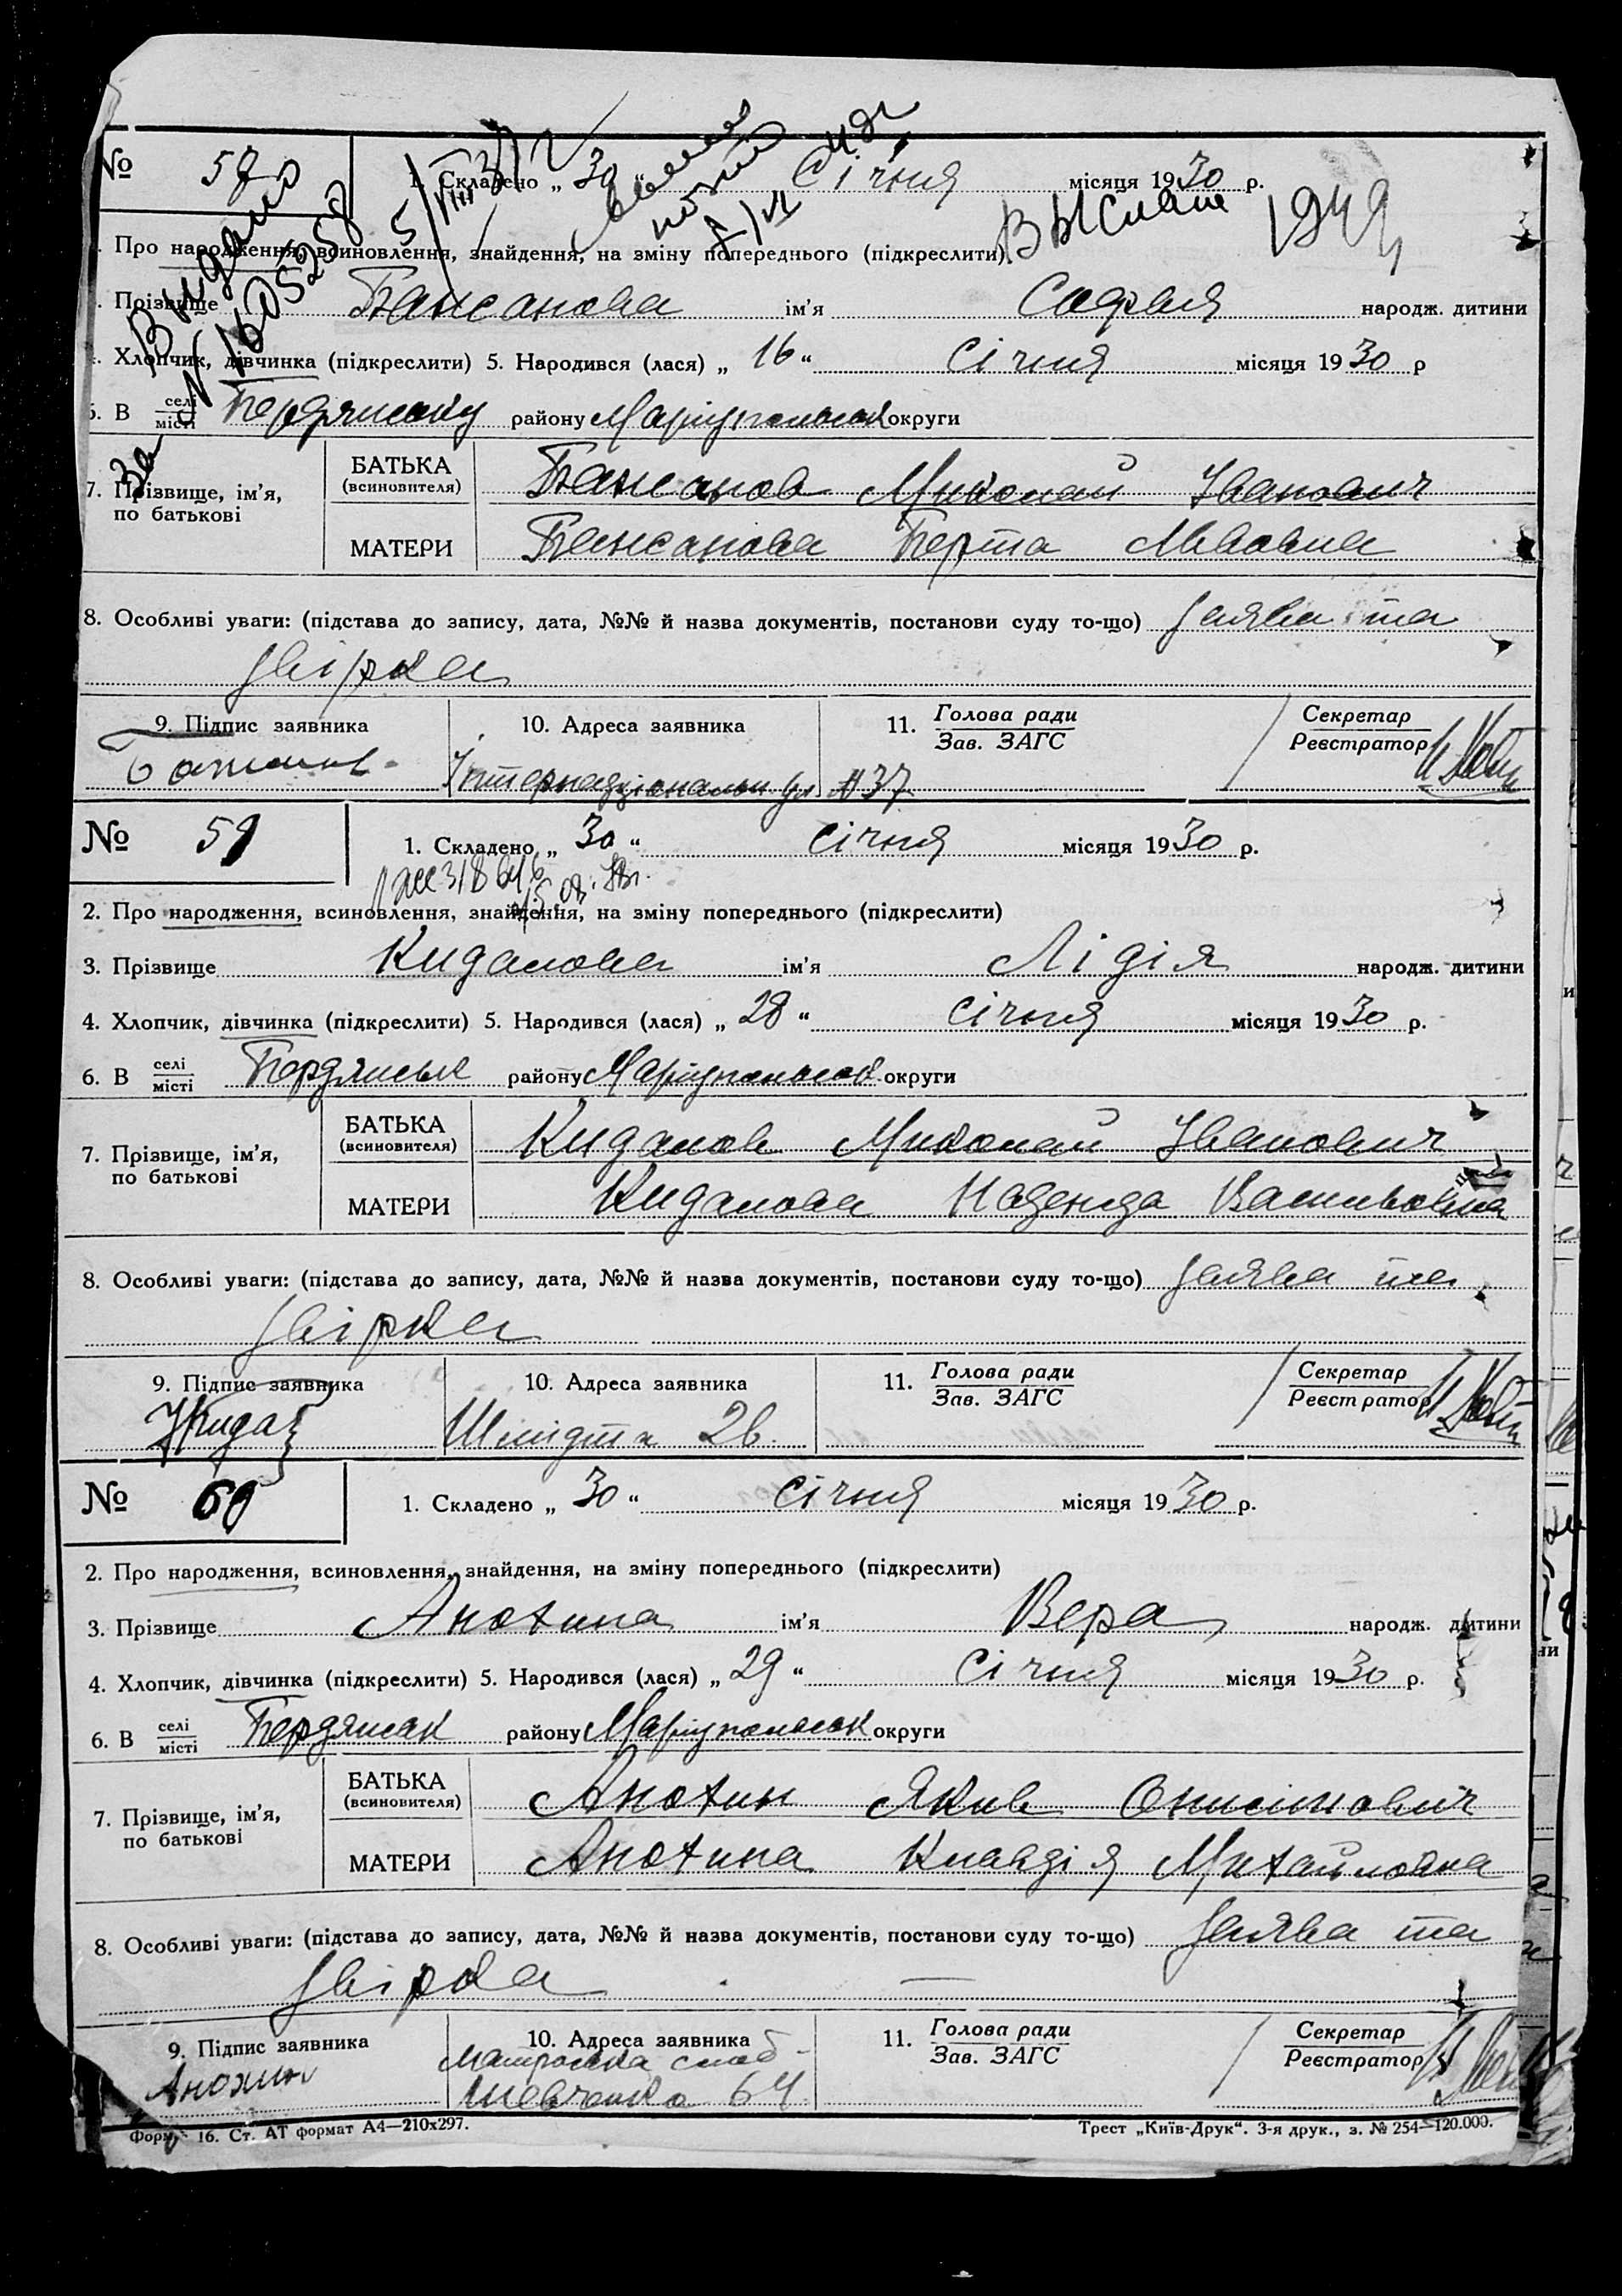 № 58
1. Складено „ 30 “ Січня місяця 1930 р.
Видано
За № 1605258
Выслане 1949
Про народження, всиновлення, знайдення, на зміну попереднього (підкреслити).
Прізвище Бажанова ім'я Софья народж. дитини
Хлопчик, дівчинка (підкреслити) 5. Народився (лася) „ 16 “ Січня місяця 1930 р
6. В селі місті Бердянську району Маріупольськ округи
7. Прізвище, ім'я, по батькові
БАТЬКА (всиновителя) Бажанов Миколай Іванович
МАТЕРИ Бажанова Берта Львовна
8. Особливі уваги: (підстава до запису, дата, №№ й назва документів, постанови суду то-що) Заява та
звірка
9. Підпис заявника 10. Адреса заявника 11. Голова ради Зав. ЗАГС Секретар Реєстратор
Бажанов Інтернаціональн ул. #37
№ 59
1. Складено „ 30 “ січня місяця 1930 р.
2. Про народження, всиновлення, знайдення, на зміну попереднього (підкреслити)
3. Прізвище Кидалова ім'я Лідія народж. дитини
4. Хлопчик, дівчинка (підкреслити) 5. Народився (лася) „ 28 “ січня місяця 1930 р.
6. В селі місті Бердянськ району Маріупольськ. округи
7. Прізвище, ім'я, по батькові
БАТЬКА (всиновителя) Кидалов Миколай Іванович
МАТЕРИ Кидалова Надежда Васильовна
8. Особливі уваги: (підстава до запису, дата, №№ й назва документів, постанови суду то-що) Заява та
звірка
9. Підпис заявника 10. Адреса заявника 11. Голова ради Зав. ЗАГС Секретар Реєстратор
Шмідта 26.
№ 60
1. Складено „ 30 “ січня місяця 1930 р.
2. Про народження, всиновлення, знайдення, на зміну попереднього (підкреслити)
3. Прізвище Анохина ім'я Вера народж. дитини
4. Хлопчик, дівчинка (підкреслити) 5. Народився (лася) „ 29 “ Січня місяця 1930 р.
6. В селі місті Бердянськ району Маріупольськ округи
7. Прізвище, ім'я, по батькові
БАТЬКА (всиновителя) Анохин Яків Онисімович
МАТЕРИ Анохина Клавдія Михайловна
8. Особливі уваги: (підстава до запису, дата, №№ й назва документів, постанови суду то-що) Заява та
звірка —
9. Підпис заявника 10. Адреса заявника 11. Голова ради Зав. ЗАГС Секретар Реєстратор
Анохин Матроська слоб-
Шевченко 64
Форм. 16. Ст. АТ формат А4—210х297. Трест „Київ-Друк“. 3-я друк., з. № 254—120.000.